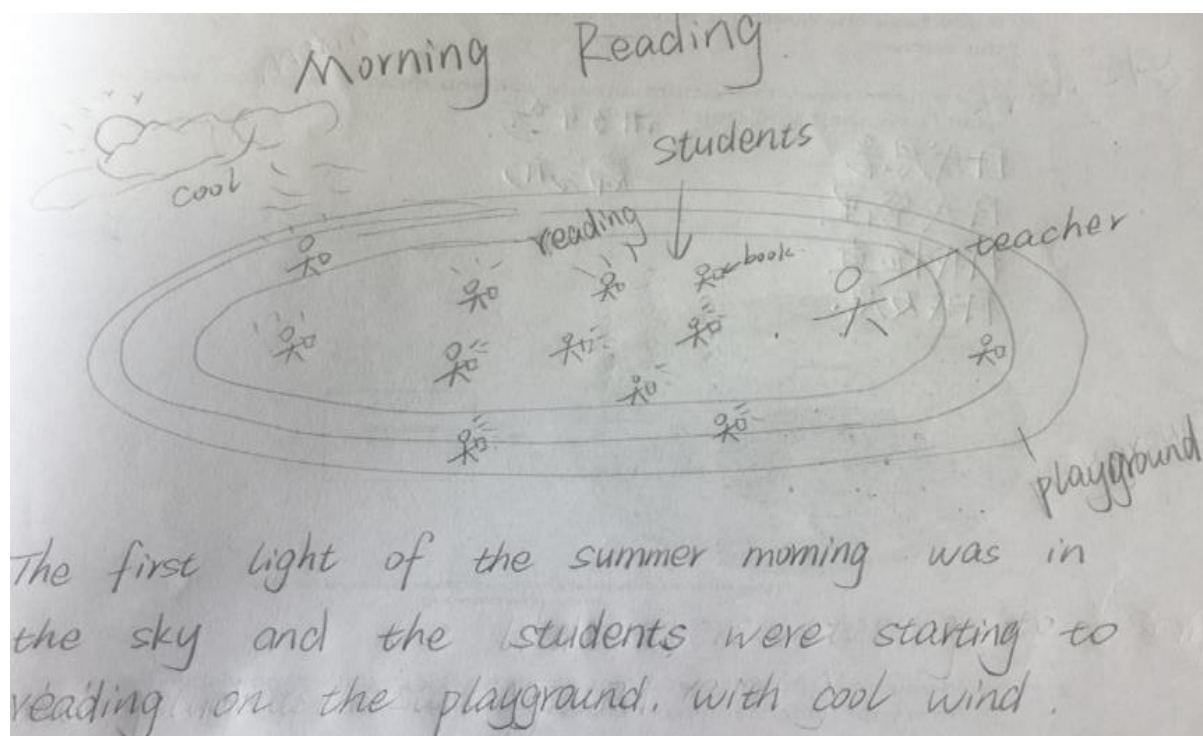 Morning Reading.
students
cool
reading
teacher
book.
playground
The first light of the summer morning was in
the sky and the students were starting to
reading on the playground. with cool wind.